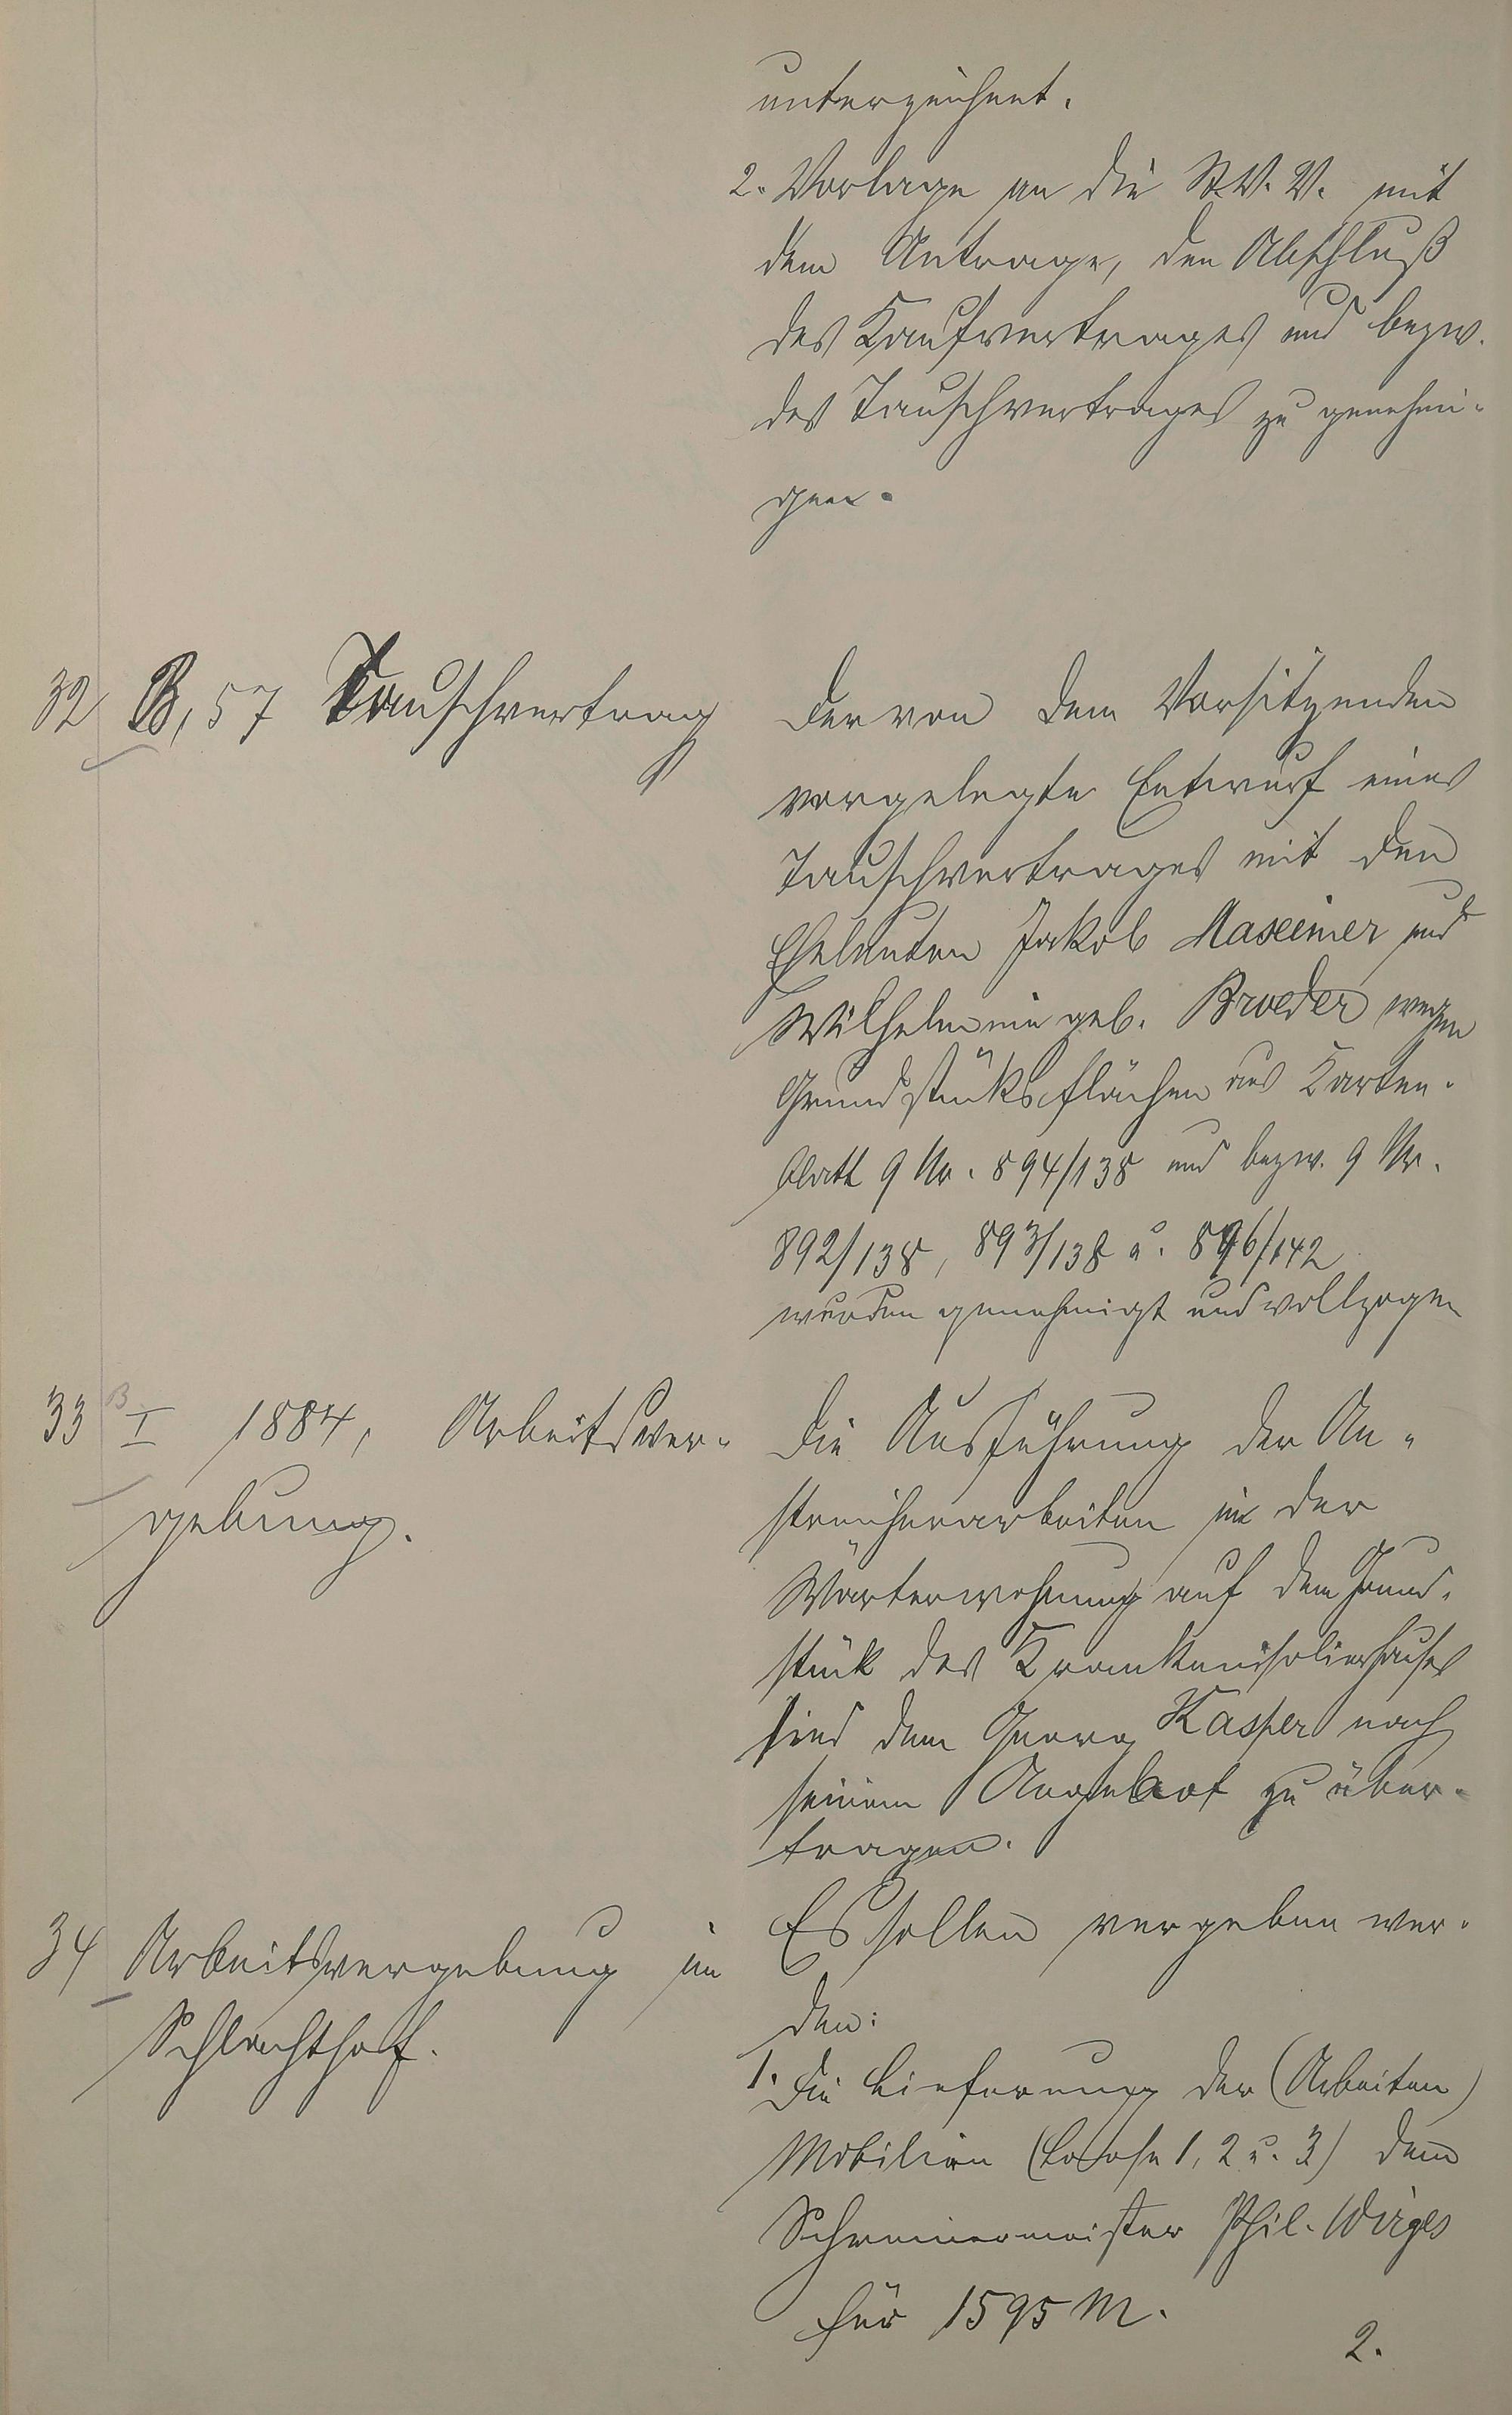 unterzeichnet.
2. Vorlage an die St.V.V. mit
dem Antrage, den Abschluß
des Kaufvertrages und bezw.
des Tauschvertrages zu genehmi-
gen.
32 B, 57 Tauschvertrag
Der von dem Vorsitzenden
vorgelegte Entwurf eines
Tauschvertrages mit den
Eheleuten Jakob Maxeiner und
Wilhelmine geb. Broeder wegen
Grundstücksflächen aus Karten-
blatt 9 Nr. 894/138 und bezw. 9 Nr.
892/138, 893/138 u. 896/142
wurden genehmigt und vollzogen
33 B I 1884, Arbeitsver-
gebung.
Die Ausführung der An-
streicherarbeiten in der
Wärterwohnung auf dem Grund-
stück des Krankenisolierhauses
sind dem Georg Kasper nach
seinem Angebot zu über-
tragen.
34 Arbeitsvergebung im
Schlachthof.
Es sollen vergeben wer-
den:
1. Die Lieferung der (Arbeiten)
Mobilien (Loose 1, 2 u. 3) dem
Schreinermeister Phil. Wirges
für 1595 M.
2.